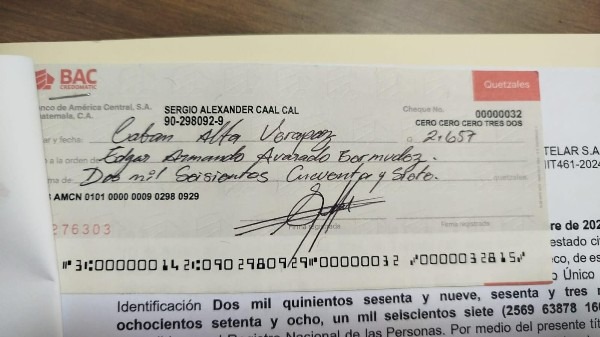 BAC
CREDOMATIC
Quetzales
nco de América Central, S.A.
atemala, C.A.
SERGIO ALEXANDER CAAL CAL
90-298092-9
Cheque No. 00000032
CERO CERO CERO TRES DOS
ar y fecha: Coban Alta Verapaz Q 2,657
a la orden de Edgar Armando Avarado Bermudez.
ma de: Dos mil Seisientos Cincuenta y Siete. quetzales
AMCN 0101 0000 0009 0298 0929
276303
Firma registrada
Firma registrada
TELAR S.A
IIT461-202
re de 202
estado civ
co, de es
o Único
Identificación Dos mil quinientos sesenta y nueve, sesenta y tres m
ochocientos setenta y ocho, un mil seiscientos siete (2569 63878 160
Registro Nacional de las Personas. Por medio del presente tít